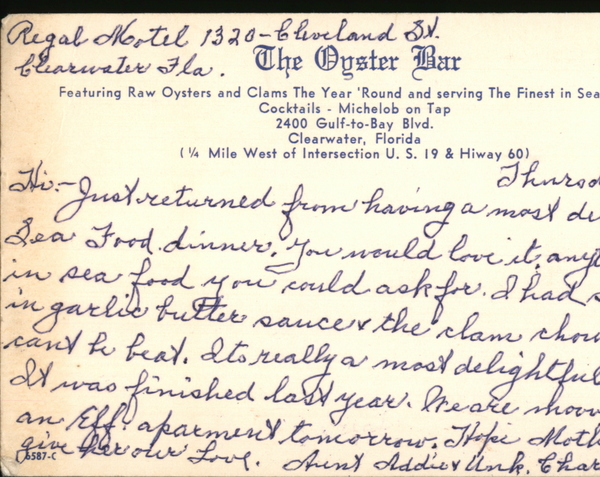 Regal Motel 1320-Cleveland St.
Clearwater Fla.
The Oyster Bar
Featuring Raw Oysters and Clams The Year 'Round and serving The Finest in Sea
Cocktails - Michelob on Tap
2400 Gulf-to-Bay Blvd.
Clearwater, Florida
(¼ Mile West of Intersection U. S. 19 & Hiway 60)
Thursd
Hi:- Just returned from having a most de
Sea Food dinner. You would love it, anyt
in sea food you could ask for. I had s
in garlic butter sauce & the clam chow
can't be beat. Its really a most delightful
It was finished last year. We are moov
an Eff. aparment tomorrow. Hope Moth
give her our Love. Aunt Addie & Unk. Char
6587-C